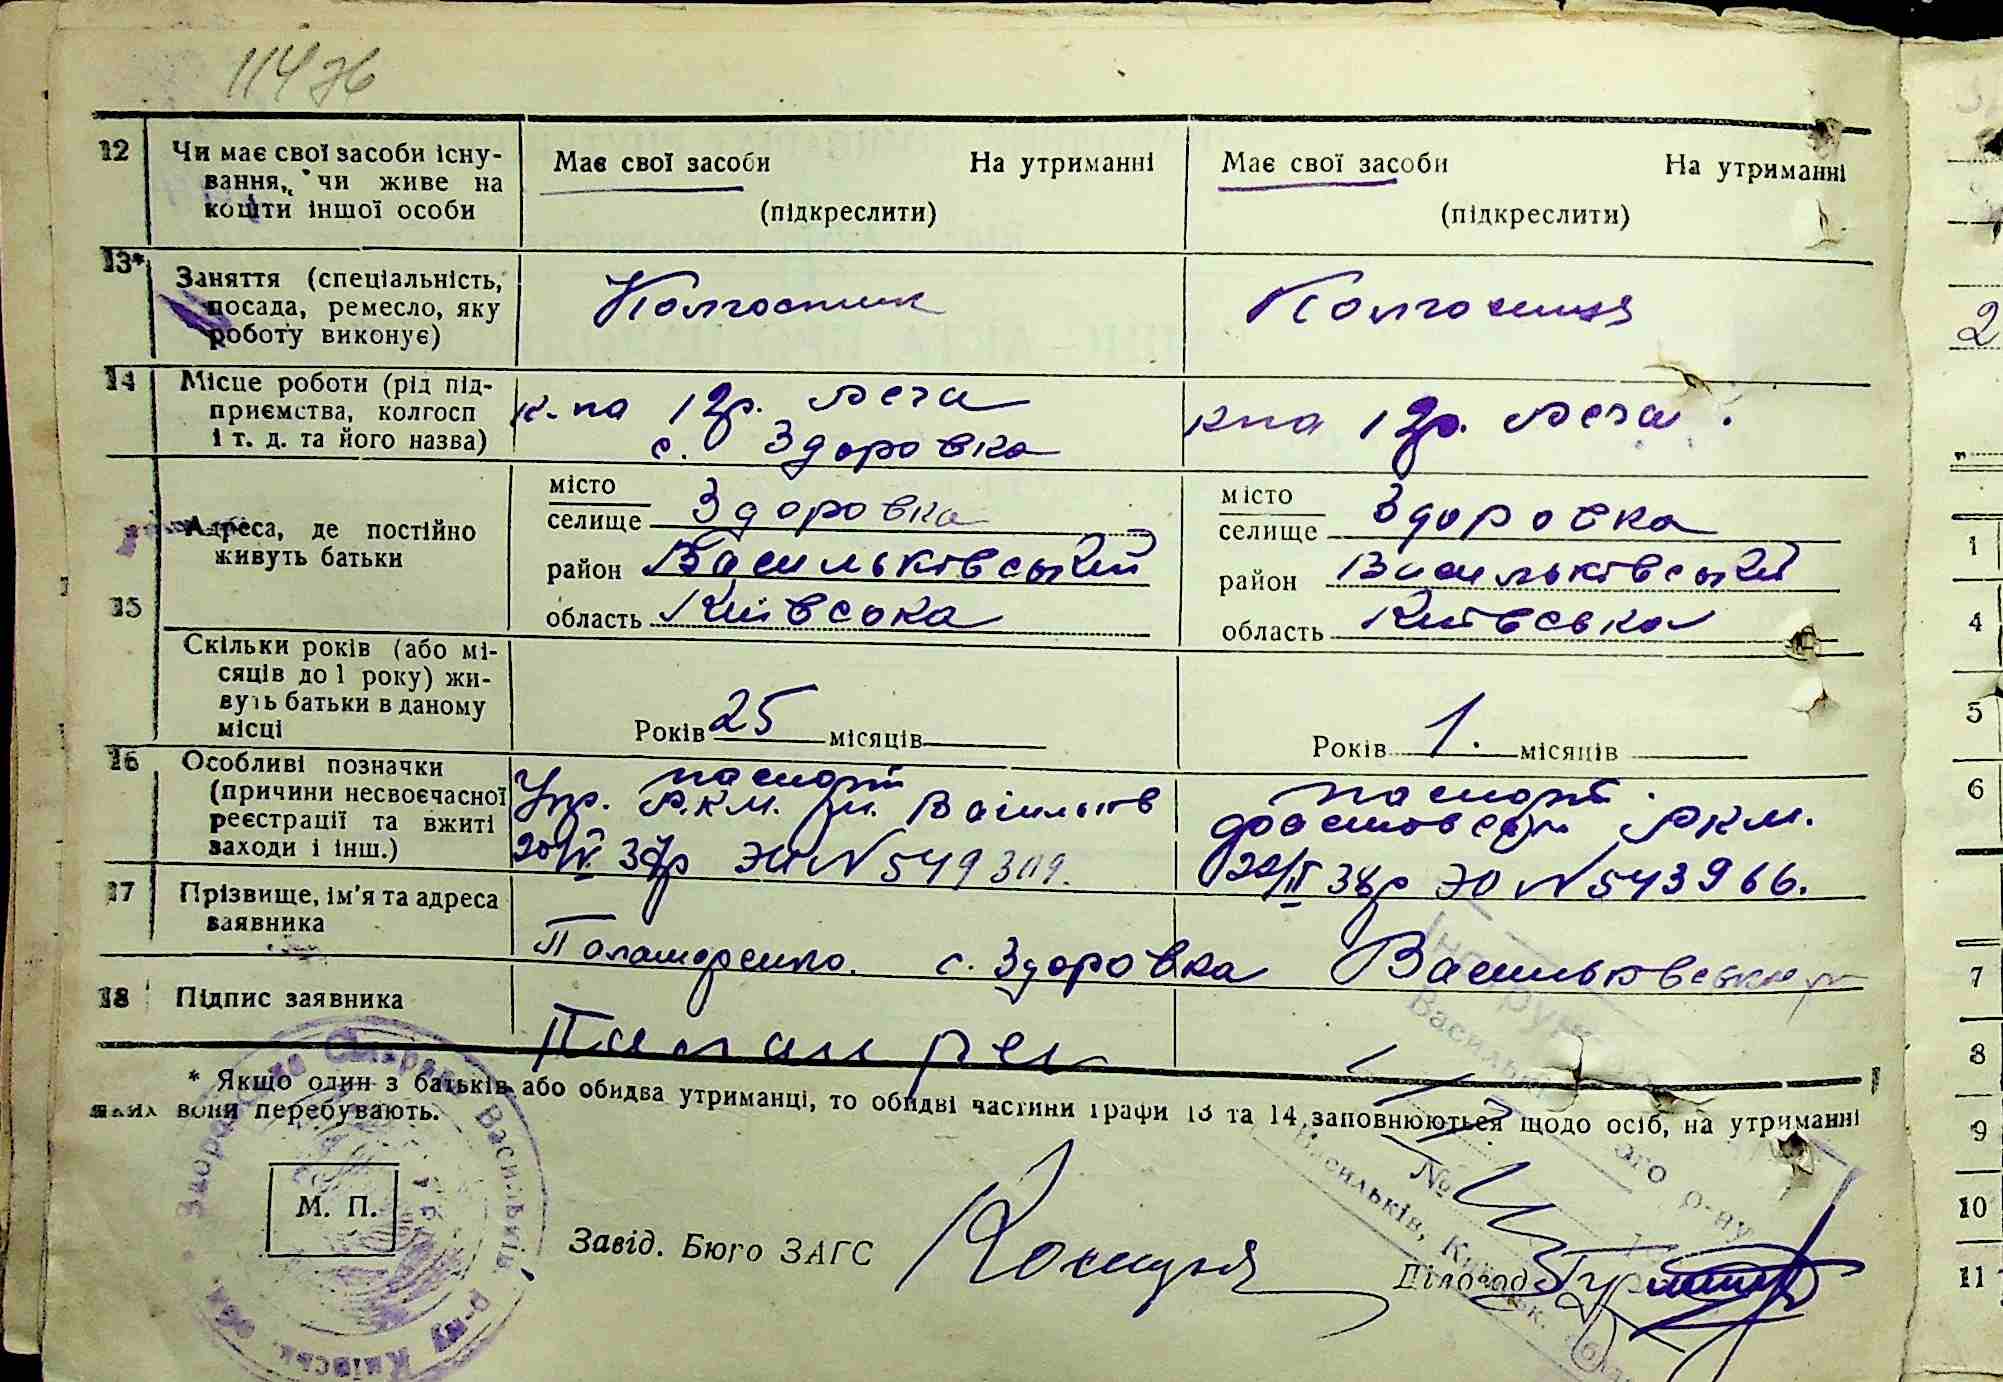 114 зв
12 Чи має свої засоби існу-
вання, чи живе на
кошти іншої особи
Має свої засоби На утриманні
(підкреслити)
Має свої засоби На утриманні
(підкреслити)
13* Заняття (спеціальність,
посада, ремесло, яку
роботу виконує)
Колгоспник
Колгоспниця
14 Місце роботи (рід під-
приємства, колгосп
і т. д. та його назва)
к-па 12р.
с. Здоровка
кпа 12р.
15 Адреса, де постійно
живуть батьки
місто
селище Здоровка
район Васильківський
область Київська
місто
селище Здоровка
район Васильківський
область Київська
Скільки років (або мі-
сяців до 1 року) жи-
вуть батьки в даному
місці
Років 25 місяців
Років 1. місяців
16 Особливі позначки
(причини несвоєчасної
реєстрації та вжиті
заходи і інш.)
паспорт
Упр. Р.К.М. м. Васильків
20/IV 37р ЭЮ № 549309.
паспорт
Р.К.М.
22/II 38р ЭЮ № 543966.
17 Прізвище, ім'я та адреса
заявника
Паламаренко. с. Здоровка Васильковського р
18 Підпис заявника
* Якщо один з батьків або обидва утриманці, то обидві частини графи 13 та 14 заповнюються щодо осіб, на утриманні
яких вони перебувають.
М. П.
Завід. Бюро ЗАГС
Діловод
Васильків, Київськ.
№
2
1
4
5
6
7
8
9
10
11